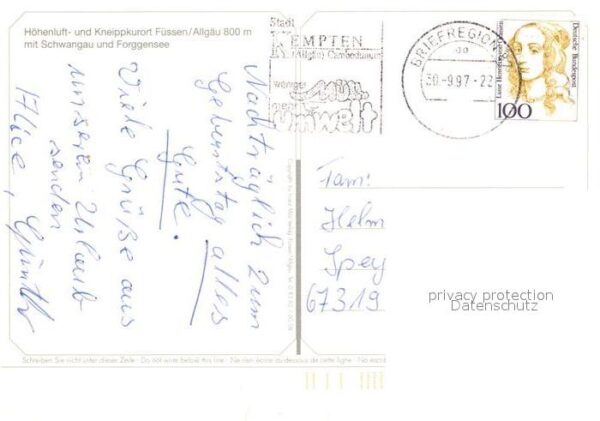 Höhenluft- und Kneippkurort Füssen/Allgäu 800 m
mit Schwangau und Forggensee
Nachträglich zum
Geburtstag alles
Gute.
Viele Grüße aus
unserem Urlaub
senden
Alice, Günther
Stadt
KEMPTEN
(Allgäu) Cambodunum
weniger
Müll
mehr
Umwelt
BRIEFREGION 87
30.-9.97-22
Deutsche Bundespost
Luise Henriette von Oranien
100
Fam:
Helm
Spey
67319
privacy protection
Datenschutz
Schreiben Sie nicht unter dieser Zeile · Do not write below this line · Ne rien écrire au-dessous de cette ligne · No escribi